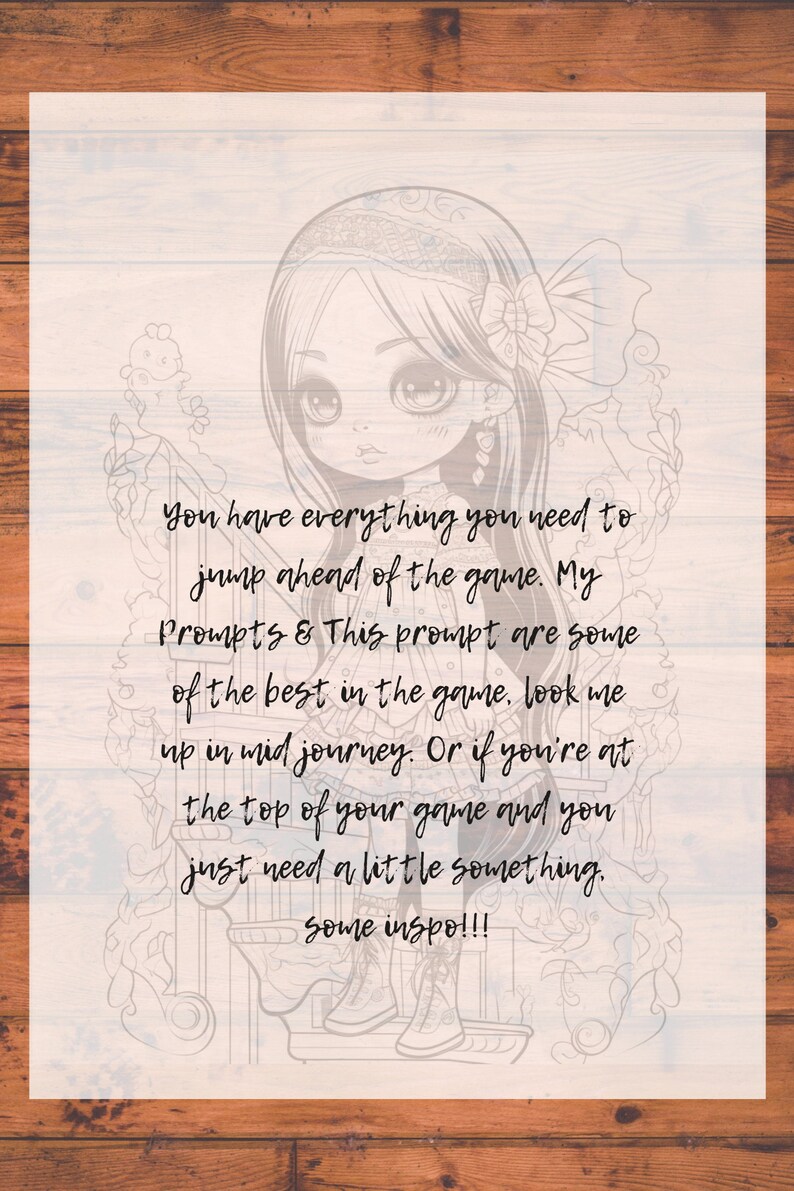 You have everything you need to
jump ahead of the game. My
Prompts & This prompt are some
of the best in the game, look me
up in mid journey. Or if you're at
the top of your game and you
just need a little something,
some inspo!!!